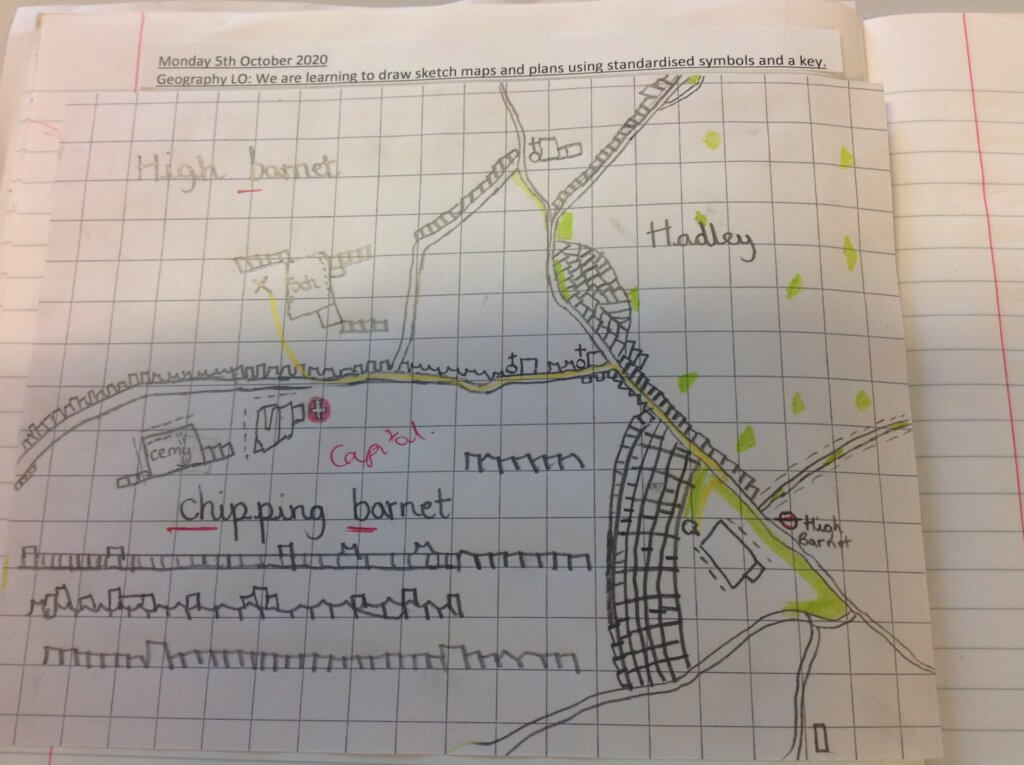 Monday 5th October 2020
Geography LO: We are learning to draw sketch maps and plans using standardised symbols and a key.
High barnet
Hadley
Sch
cemy
Capital.
chipping barnet
High
Barnet